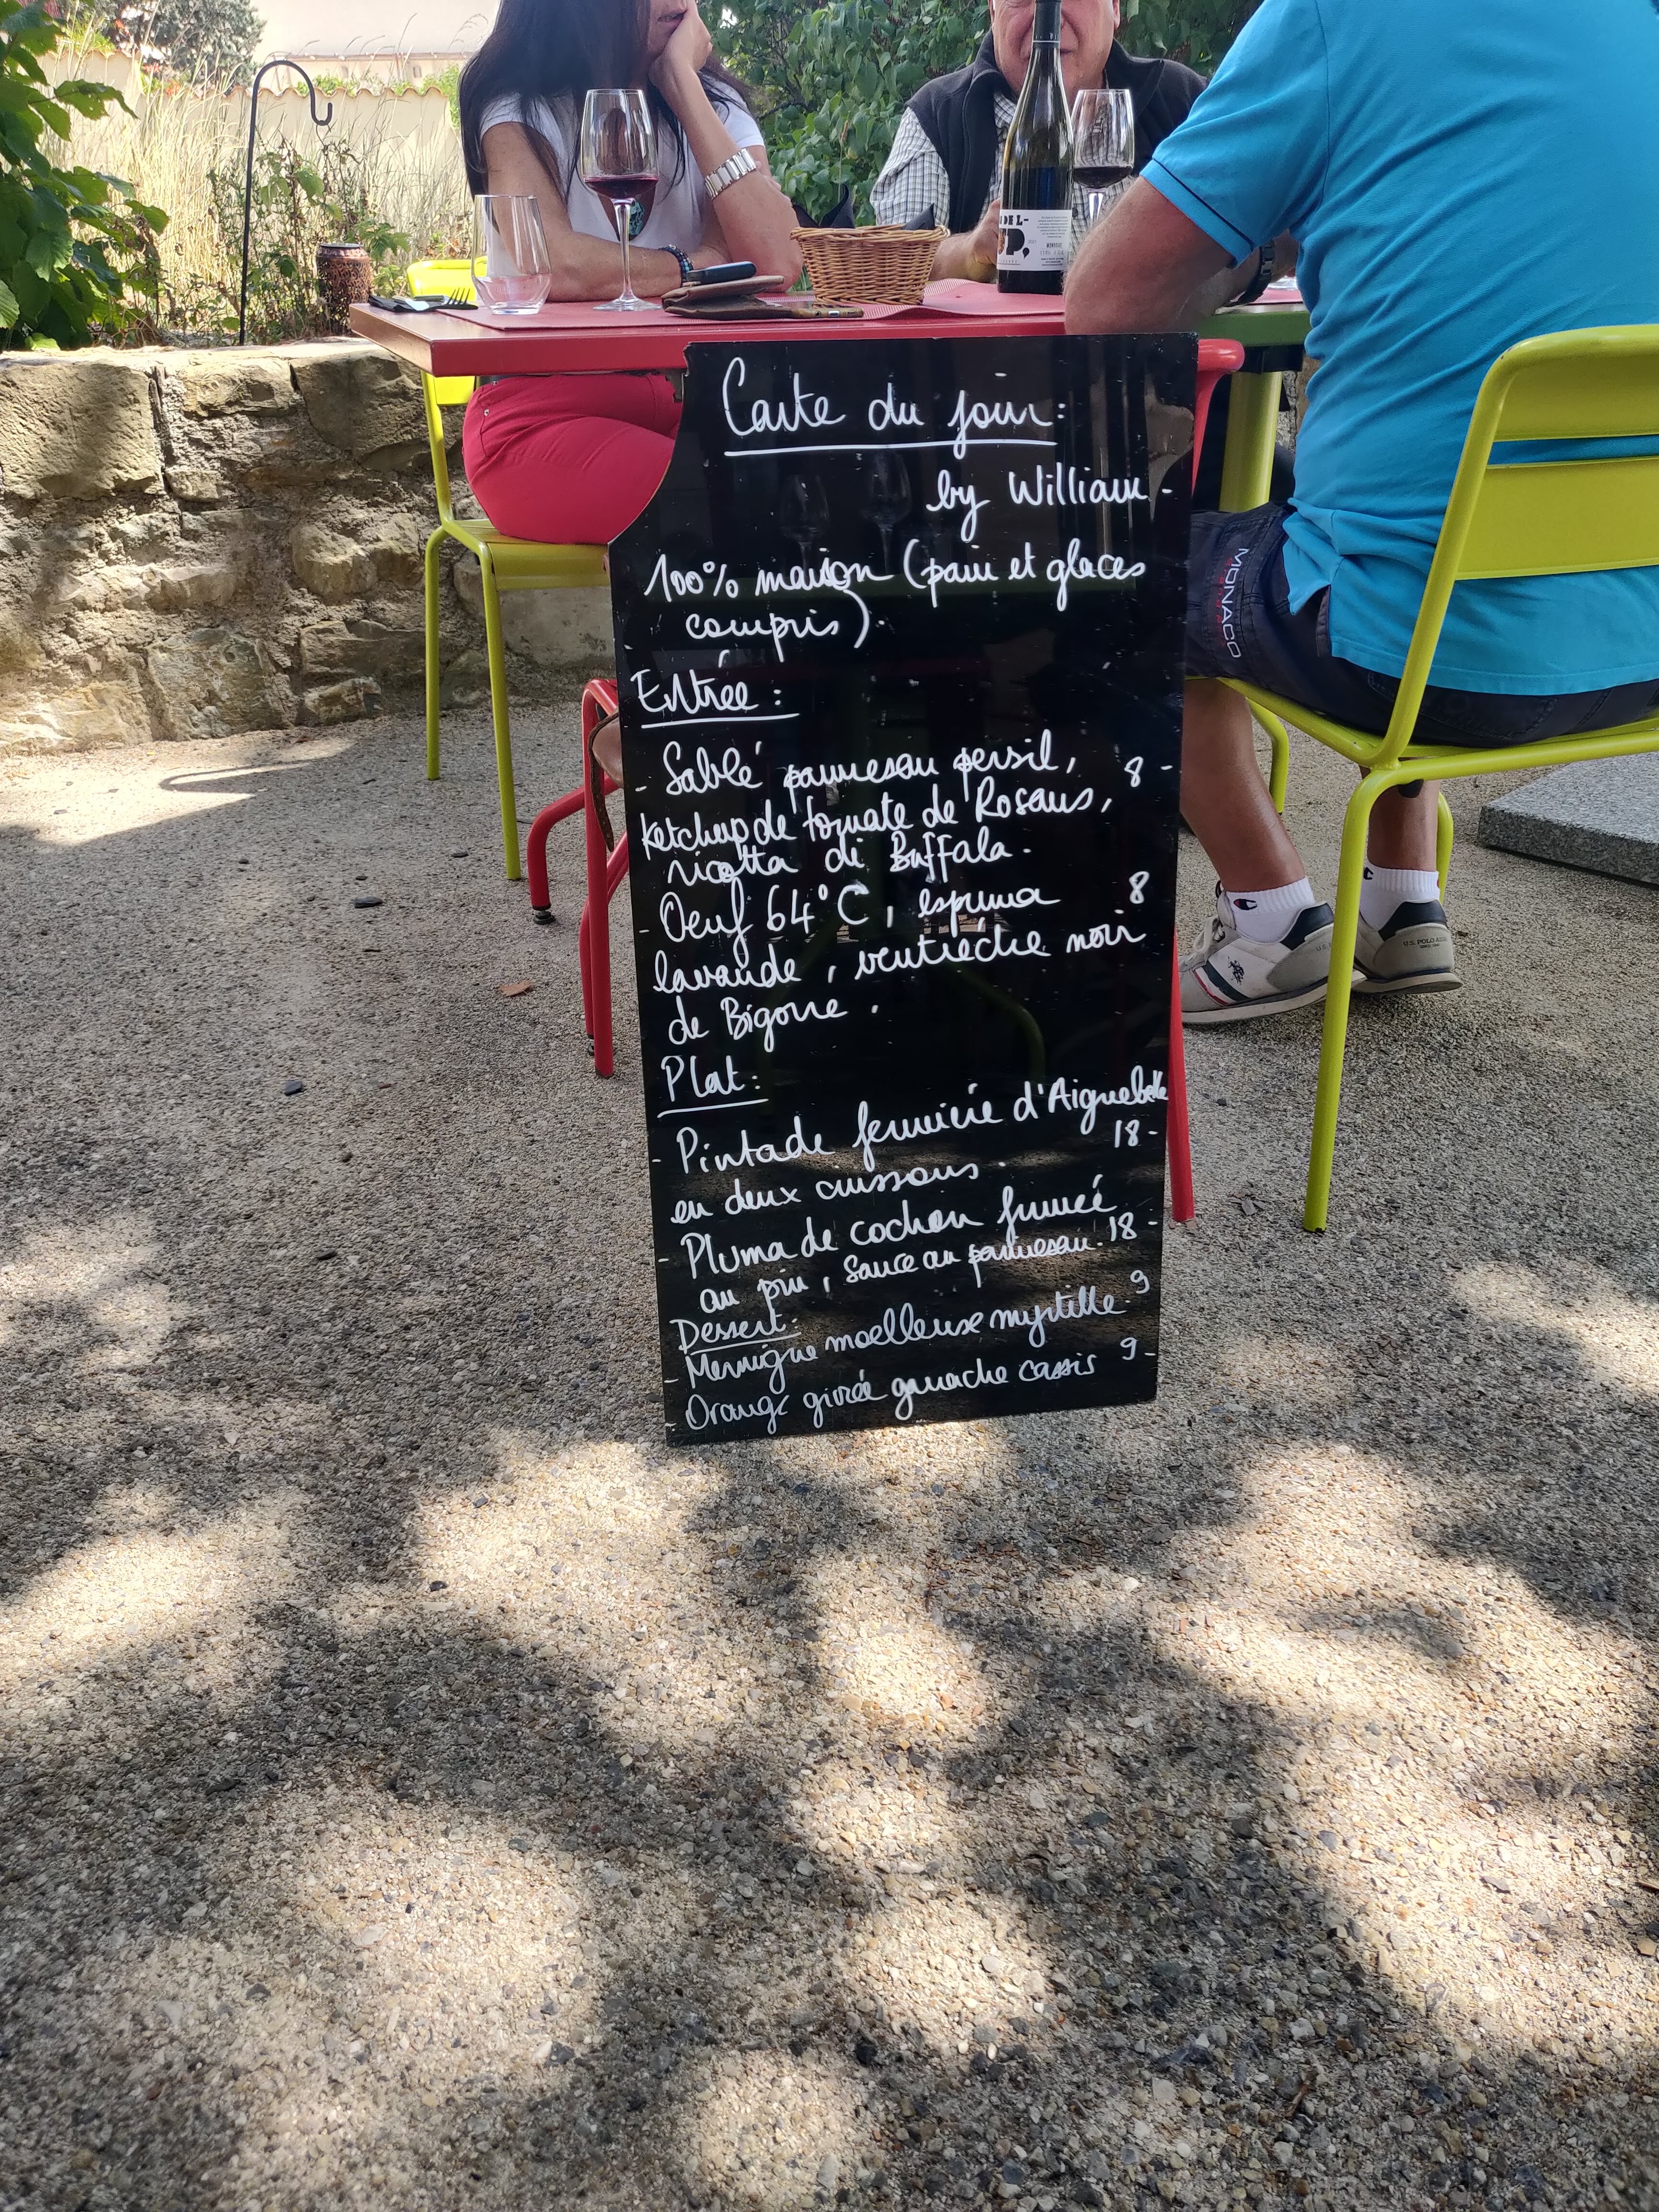 DE L-
P,
Carte du jour:
by William -
100% maison (pain et glaces
compris).
Entrée :
- Sablé parmesan persil, 8 -
ketchup de tomate de Rosans,
ricotta di Buffala.
- Oeuf 64°C, espuma 8
lavande, ventrèche noir
de Bigorre.
Plat:
- Pintade fermière d'Aiguebelle
18-
en deux cuissons.
- Pluma de cochon fumé
au pin, sauce au parmesan. 18 -
Dessert:
- Meringue moelleuse myrtille 9
- Orange givrée ganache cassis 9 -
MONACO
U.S. POLO ASSN.